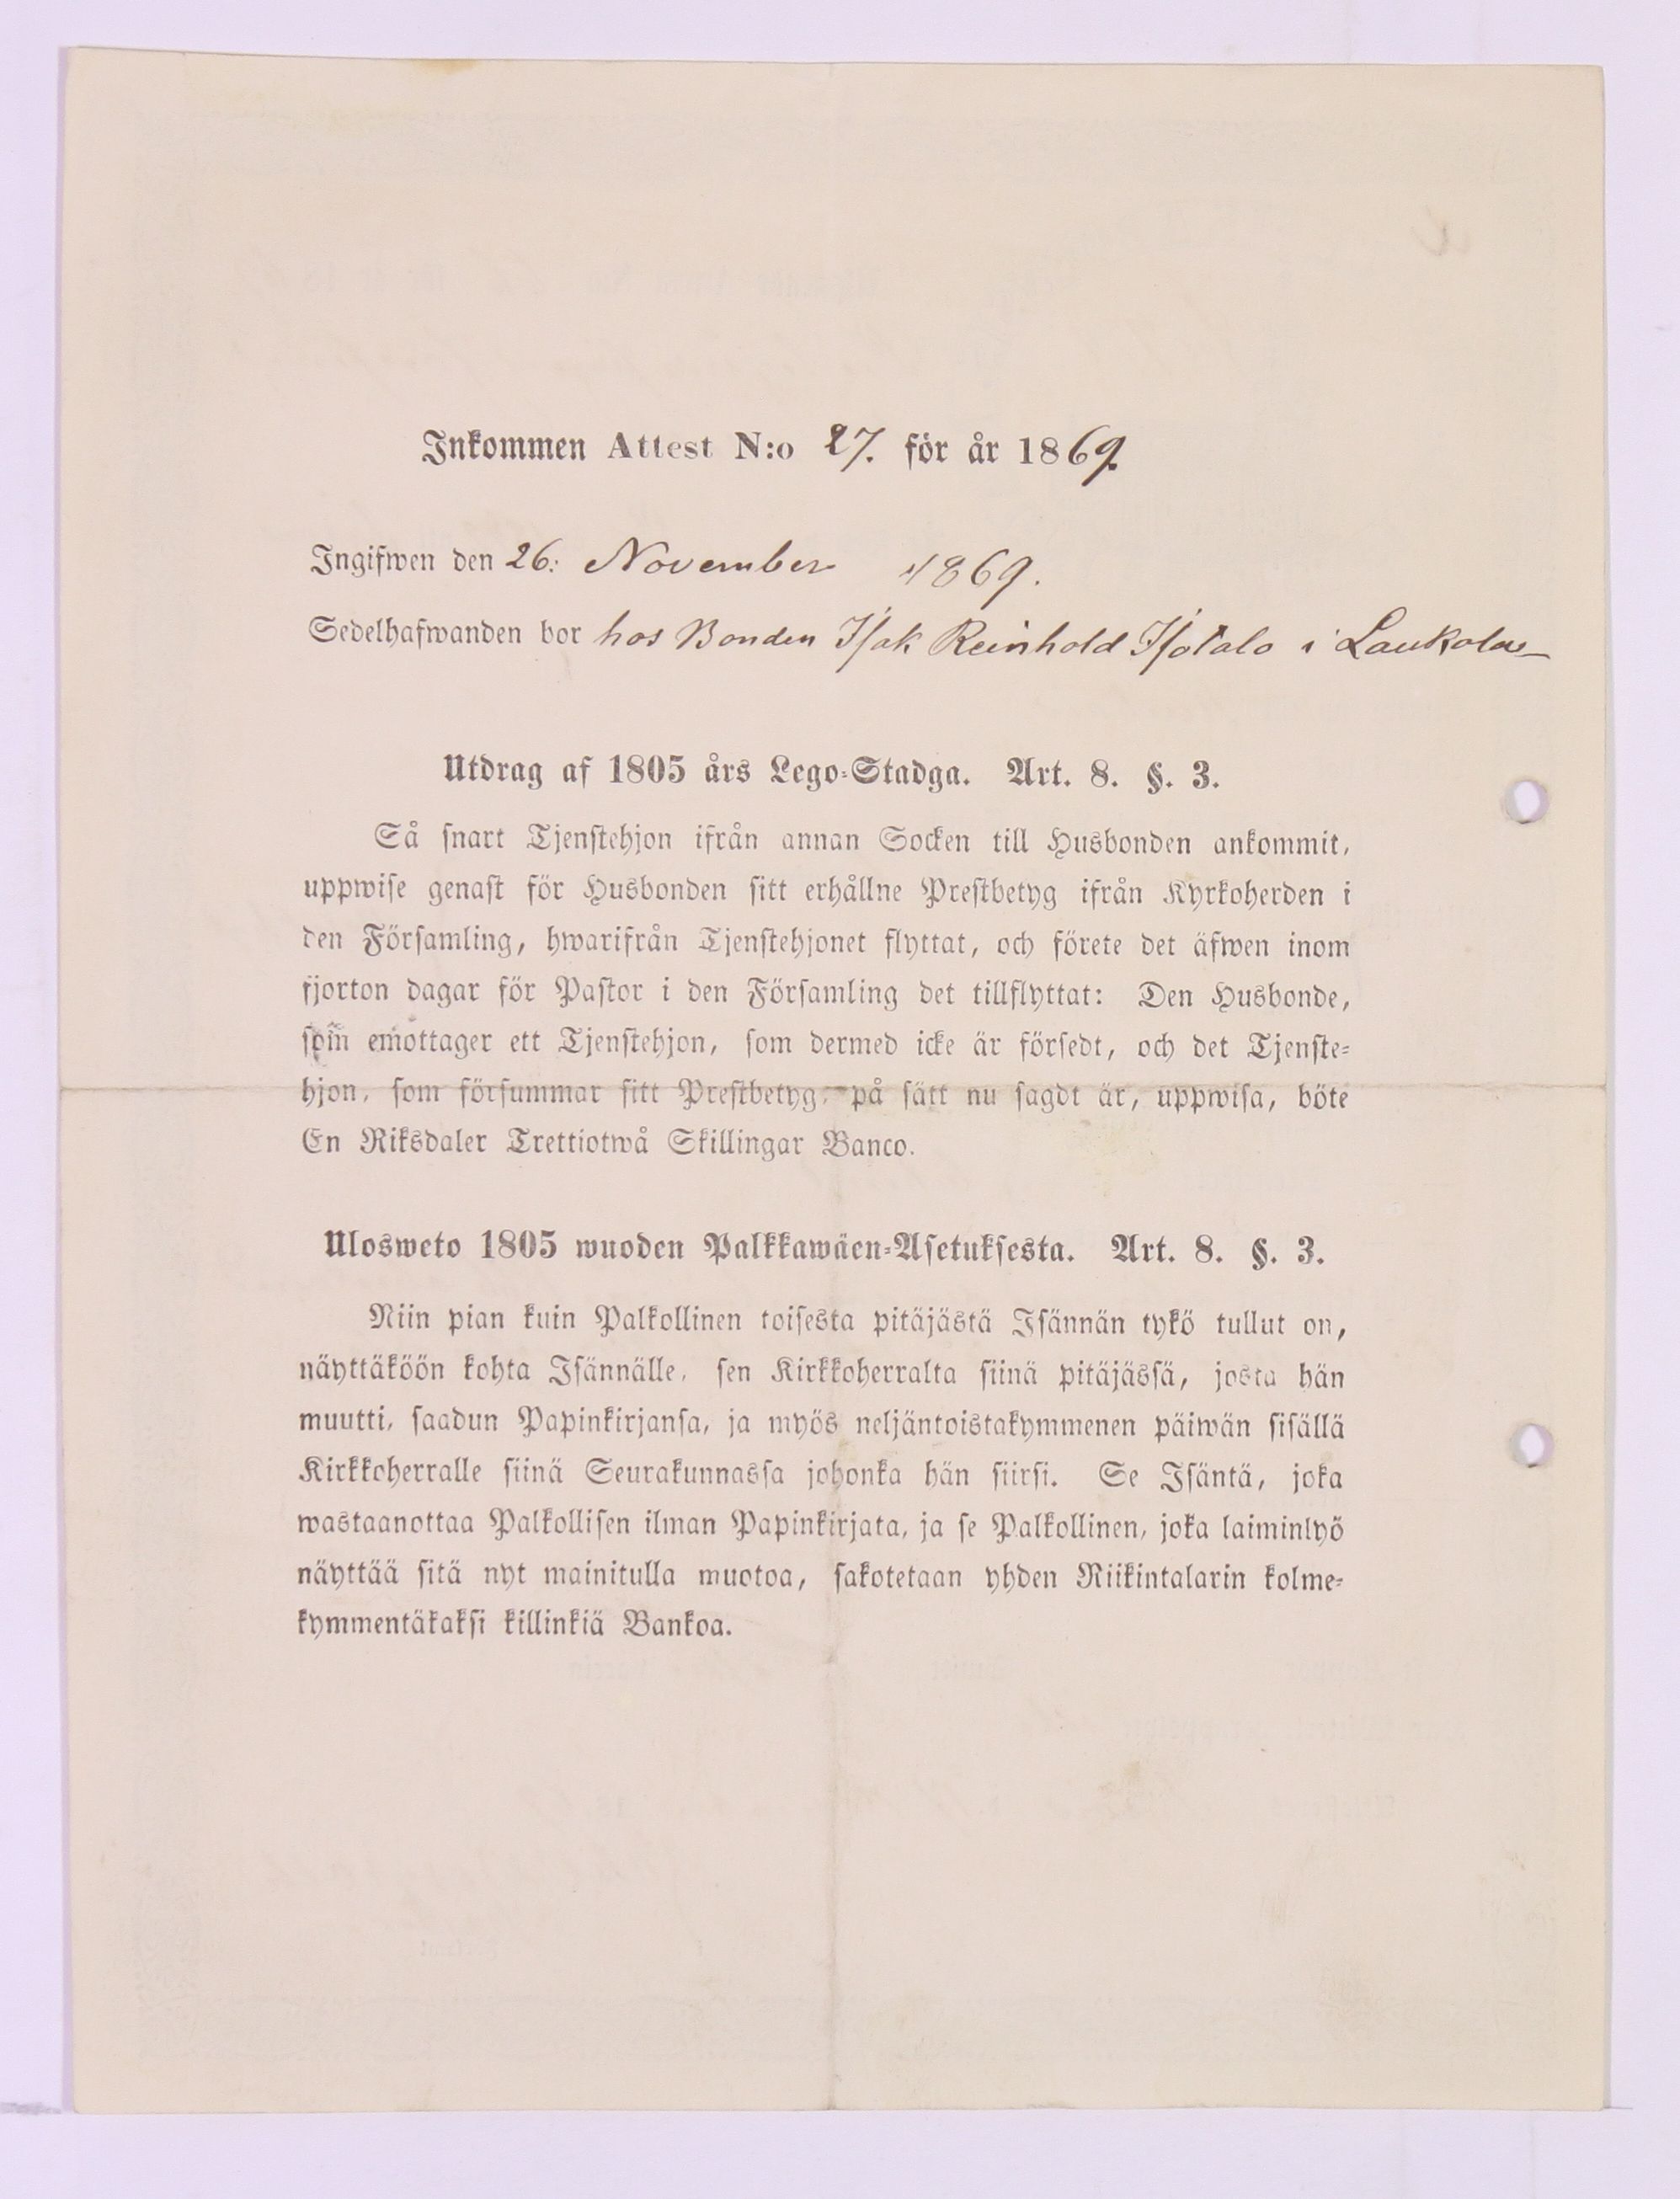 Inkommen Attest N:o 27. för år 1869.
Ingifwen den 26: November 1869.
Sedelhafwanden bor hos Bonden Isak Reinhold Isotalo i Laukola
Utdrag af 1805 års Lego-Stadga. Art. 8. §. 3.
Så snart Tjenstehjon ifrån annan Socken till Husbonden ankommit,
uppwise genast för Husbonden sitt erhållne Prestbetyg ifrån Kyrkoherden i
den Församling, hwarifrån Tjenstehjonet flyttat, och förete det äfwen inom
fjorton dagar för Pastor i den Församling det tillflyttat: Den Husbonde,
som emottager ett Tjenstehjon, som dermed icke är försedt, och det Tjenste-
hjon, som försummar sitt Prestbetyg, på sätt nu sagdt är, uppwisa, böte
En Riksdaler Trettiotwå Skillingar Banco.
Ulosweto 1805 wuoden Palkkawäen-Asetuksesta. Art. 8. §. 3.
Niin pian kuin Palkollinen toisesta pitäjästä Isännän tykö tullut on,
näyttäköön kohta Isännälle, sen Kirkkoherralta siinä pitäjässä, josta hän
muutti, saadun Papinkirjansa, ja myös neljäntoistakymmenen päiwän sisällä
Kirkkoherralle siinä Seurakunnassa johonka hän siirsi. Se Isäntä, joka
wastaanottaa Palkollisen ilman Papinkirjata, ja se Palkollinen, joka laiminlyö
näyttää sitä nyt mainitulla muotoa, sakotetaan yhden Riikintalarin kolme-
kymmentäkaksi killinkiä Bankoa.